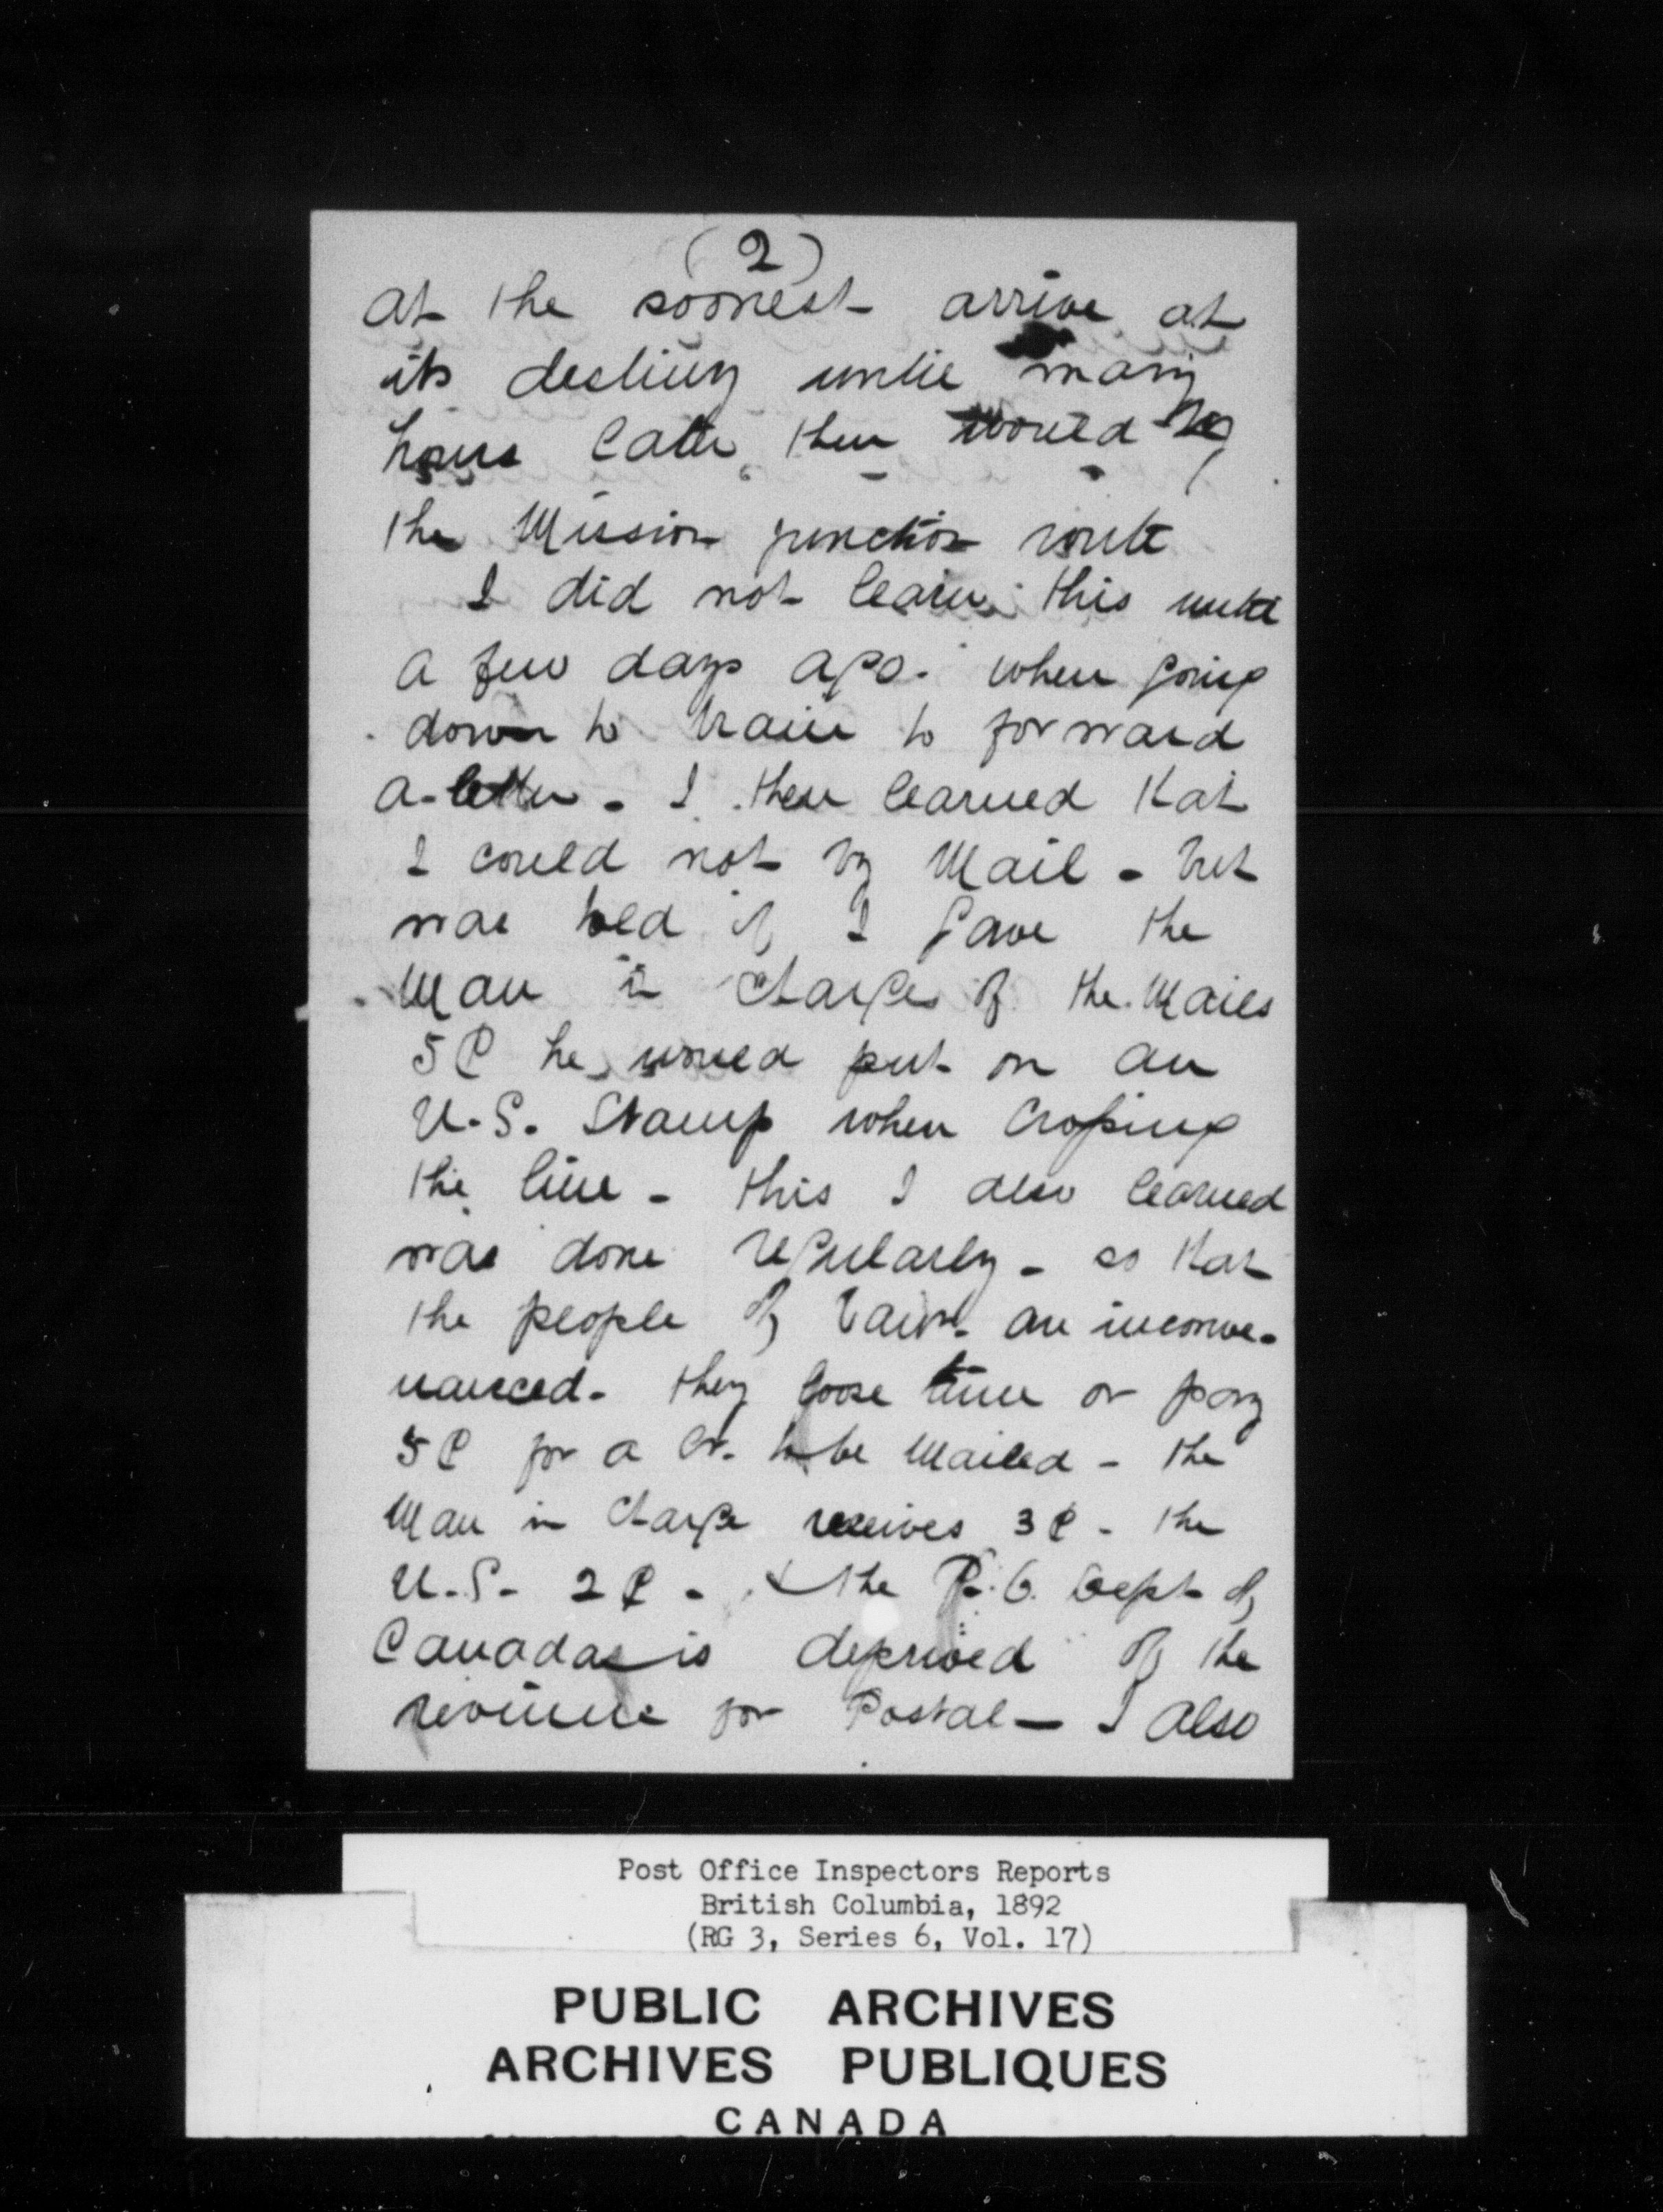 (2)
at the soonest arrive at
its destiny until many
hours later then would by
the Mission junction route
I did not learn this until
a few days ago. when going
down to train to forward
a letter - I then learned that
I could not by Mail - but
was told if I gave the
Man in charge of the Mails
5¢ he would put on an
U.S. Stamp when crossing
the line - this I also learned
was done regularly - so that
the people of Vanr. are inconve-
nanced - they loose time or pay
5¢ for a lr. to be Mailed - the
Man in charge receives 3¢ - the
U.S. 2¢ - & the P.O. Dept of
Canada is deprived of the
revenue for Postal - I also
Post Office Inspectors Reports
British Columbia, 1892
(RG 3, Series 6, Vol. 17)
PUBLIC ARCHIVES
ARCHIVES PUBLIQUES
CANADA